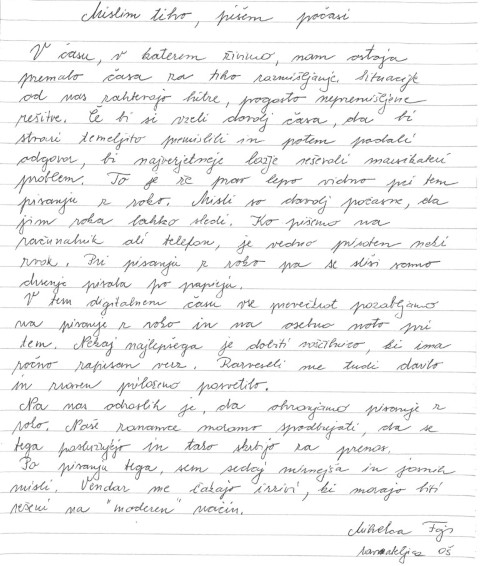 Mislim tiho, pišem počasi
V času, v katerem živimo, nam ostaja
premalo časa za tiho razmišljanje. Situacije
od nas zahtevajo hitre, pogosto nepremišljene
rešitve. Če bi si vzeli dovolj časa, da bi
stvari temeljito premislili in potem podali
odgovor, bi najverjetneje lažje reševali marsikateri
problem. To je že prav lepo vidno pri tem
pisanju z roko. Misli so dovolj počasne, da
jim roka lahko sledi. Ko pišemo na
računalnik ali telefon, je vedno prisoten neki
zvok. Pri pisanju z roko pa se sliši samo
drsenje pisala po papirju.
V tem digitalnem času vse prevečkrat pozabljamo
na pisanje z roko in na osebno noto pri
tem. Nekaj najlepšega je dobiti voščilnico, ki ima
ročno zapisan verz. Razveseli me tudi darilo
in zraven priloženo posvetilo.
Na nas odraslih je, da ohranjamo pisanje z
roko. Naše zanamce moramo spodbujati, da se
tega poslužujejo in tako skrbijo za prenos.
Po pisanju tega, sem sedaj mirnejša in jasnih
misli. Vendar me čakajo izzivi, ki morajo biti
rešeni na "moderen" način.
Mihelca
ravnateljica OŠ